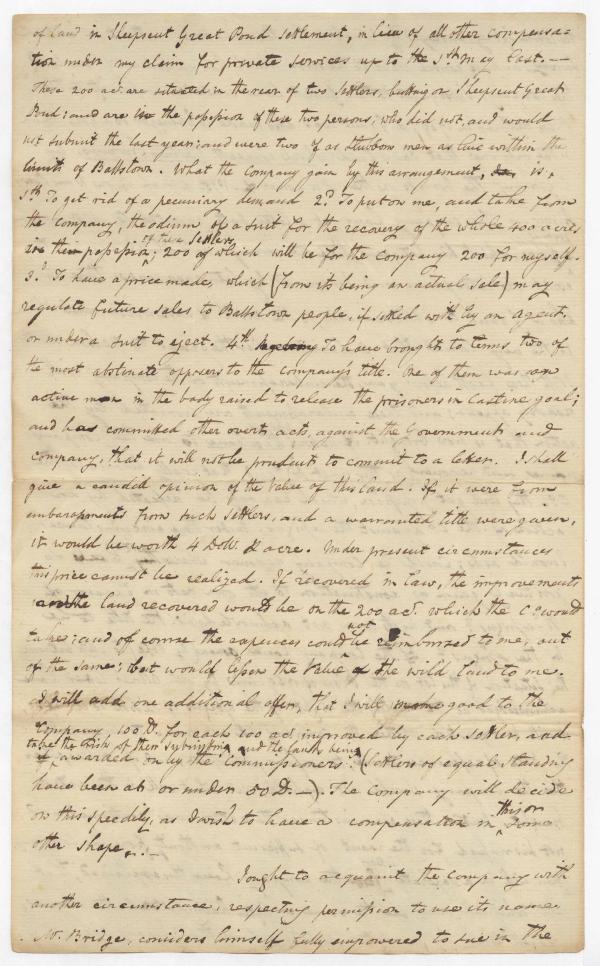 of land in Sheepscut Great Pond settlement, in lieu of all other compensa-
tion under my claim for private services up to the 5th May last. —
These 200 acs. are situated in the rear of two settlers, butting on Sheepscut Great
Pond: and are in the possession of these two persons, who did not, and would
not submit the last year: and were two of as stubborn men as live within the
limits of Ballstown. What the company gain by this arrangement, is,
1th To get rid of a pecuniary demand 2d To put on me, and take from
the company, the odium of a suit for the recovery of the whole 400 acres
in possession of these settlers; 200 of which will be for the company 200 for myself.
3d To have a price made, which (from its being an actual sale) may
regulate future sales to Ballstown people, if settled with by an agent.
or under a suit to eject. 4th To have brought to terms two of
the most obstinate opposers to the company's title. One of them was an
active man in the body raised to release the prisoners in Castine goal;
and has committed other overt acts, against the Government and
company, that it will not be prudent to commit to a letter. I shall
give a candid opinion of the value of this land. If it were from
embarassments from such settlers, and a warranted title were given,
it would be worth 4 Doll. pr acre. Under present circumstances
this price cannot be realized. If recovered in law, the improvements
land recovered would be on the 200 acs. which the Co. would
take: and of course the expences could not be reimbursed to me, out
of the same; but would lessen the value of the wild land to me.
I will add one additional offer, that I will make good to the
Company, 100 D. for each 100 acs improved by each settler, and
take the risk of their submitting and the land being
awarded on by the Commissioners. (Settlers of equal standing
have been at or under 50 D. —). The Company will decide
on this speedily, as I wish to have a compensation in this or some
other shape. —
I ought to acquaint the Company with
another circumstance, respecting permission to use its name.
Mr. Bridge, considers himself fully empowered to sue in the